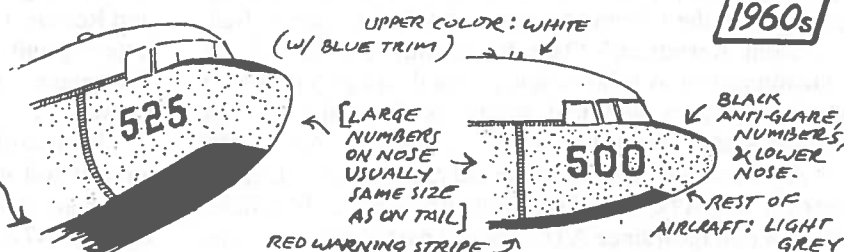 1960s
UPPER COLOR: WHITE
(W/ BLUE TRIM)
525
[LARGE
NUMBERS
ON NOSE
USUALLY
SAME SIZE
AS ON TAIL]
500
BLACK
ANTI-GLARE,
NUMBERS,
& LOWER
NOSE.
REST OF
AIRCRAFT: LIGHT
GREY
RED WARNING STRIPE